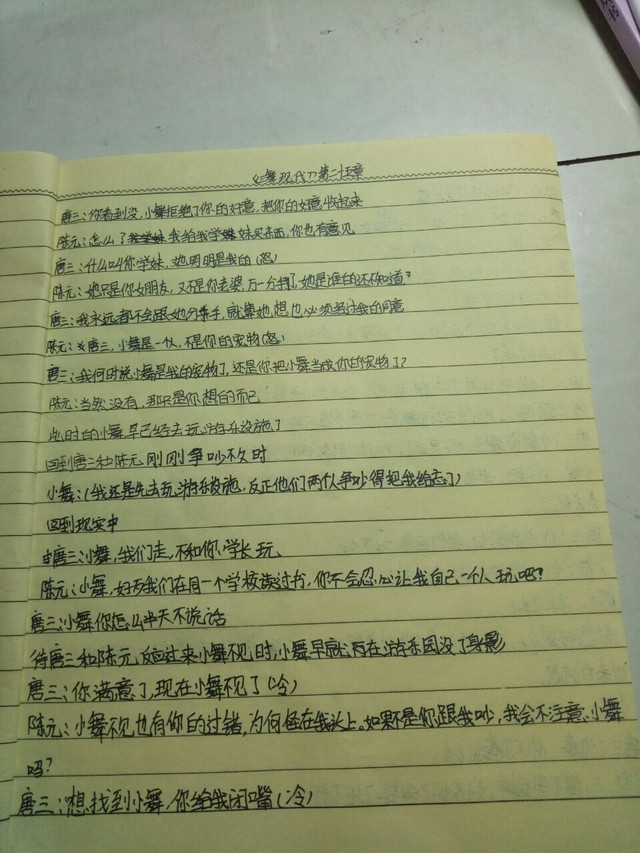 三舞现代第二五章
唐三:你看到没,小舞拒绝了你的好意,把你的好意收起来
陈元:怎么了我给我学妹买东西,你也有意见
唐三:什么叫你学妹,她明明是我的(怒)
陈元:她只是你女朋友,又不是你老婆,万一分手了,她是谁的还不知道?
唐三:我永远都不会跟她分手,就算她想也必须经过我的同意
陈元:唐三,小舞是一个人,不是你的宠物(怒)
唐三:我何时说小舞是我的宠物了,还是你把小舞当成你的宠物了?
陈元:当然没有,那只是你想的而已
此时的小舞早已经去玩游乐设施了
回到唐三和陈元刚刚争吵不久时
小舞:(我还是先去玩游乐设施,反正他们两个人争吵得把我给忘了)
回到现实中
唐三:小舞,我们走,不和你学长玩、
陈元:小舞,好歹我们在同一个学校读过书,你不会忍心让我自己一个人玩吧?
唐三:小舞你怎么半天不说话
待唐三和陈元反应过来小舞不见时,小舞早就消在游乐园没了身影
唐三:你满意了,现在小舞不见了(冷)
陈元:小舞不见也有你的过错,为何怪在我头上。如果不是你跟我吵,我会不注意小舞
吗?
唐三:想找到小舞,你给我闭嘴(冷)